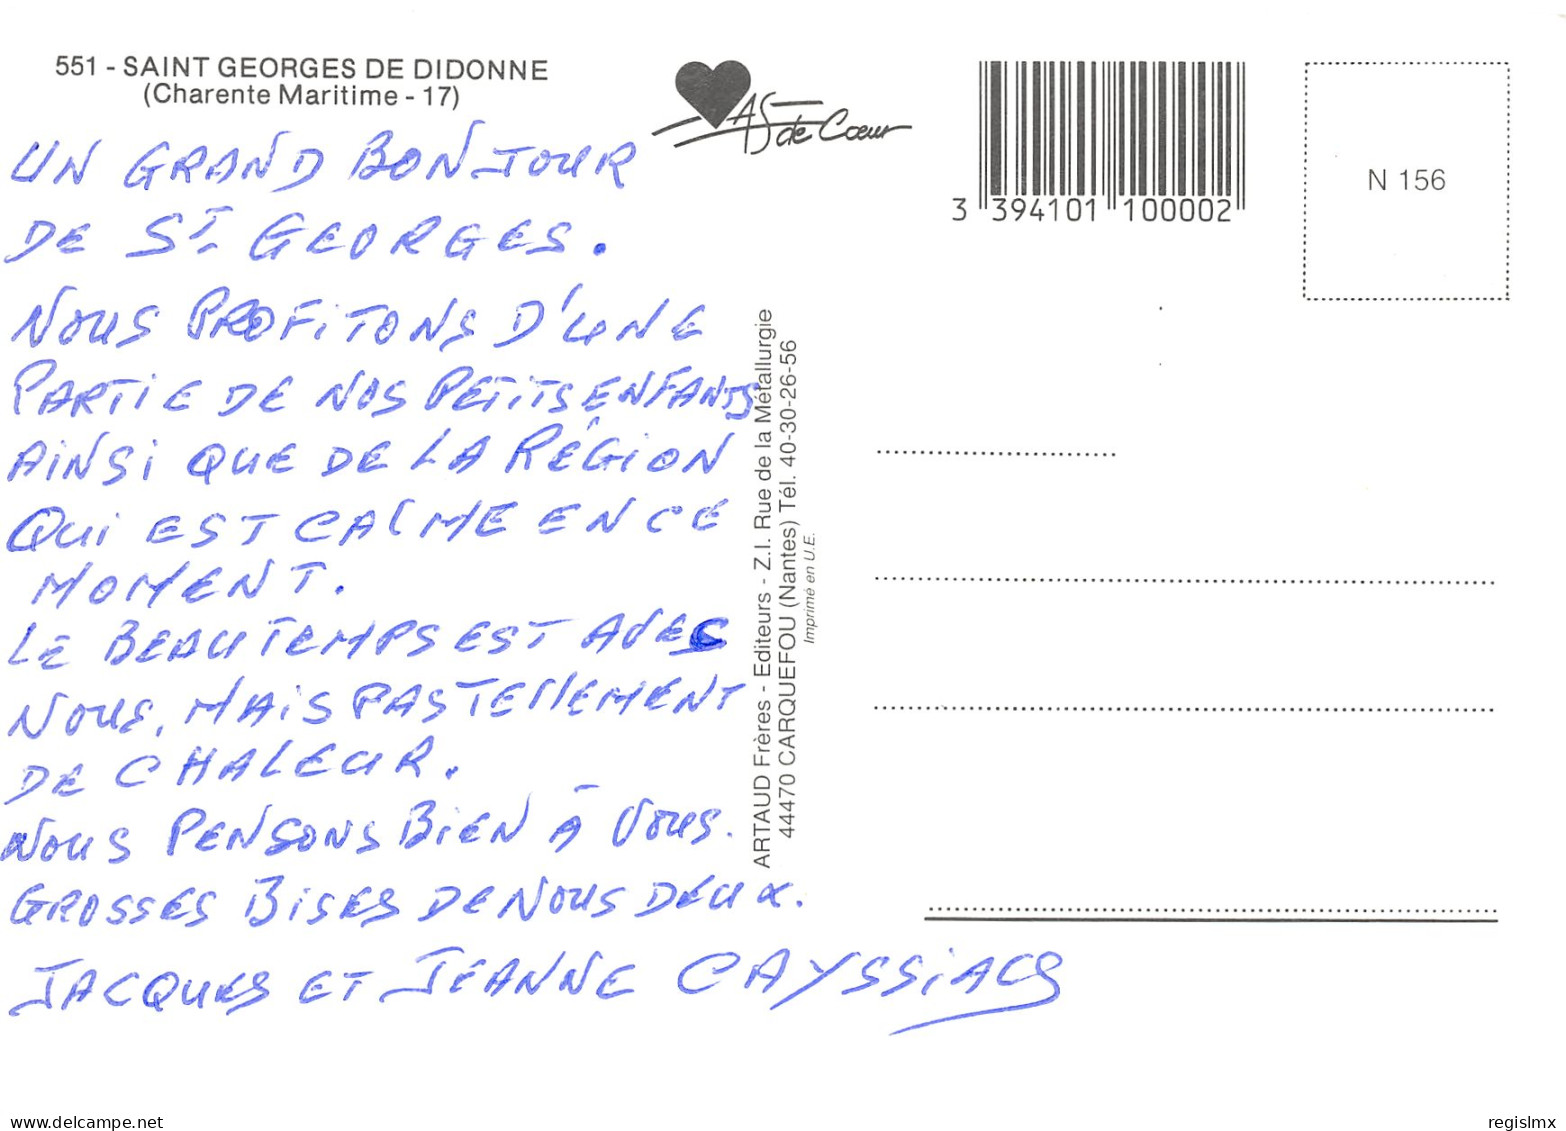 551 - SAINT GEORGES DE DIDONNE
(Charente Maritime - 17)
AS de Cœur
3 394101 100002
N 156
UN GRAND BONJOUR
DE ST GEORGES.
NOUS PROFITONS D'UNE
PARTIE DE NOS PETITS ENFANTS
AINSI QUE DE LA RÉGION
QUI EST CALME EN CE
MOMENT.
LE BEAU TEMPS EST AVEC
NOUS, MAIS PAS TELLEMENT
DE CHALEUR.
NOUS PENSONS BIEN À VOUS.
GROSSES BISES DE NOUS DEUX.
JACQUES ET JEANNE CAYSSIACS
ARTAUD Frères - Editeurs - Z.I. Rue de la Métallurgie
44470 CARQUEFOU (Nantes) Tél. 40-30-26-56
Imprimé en U.E.
www.delcampe.net
regislmx